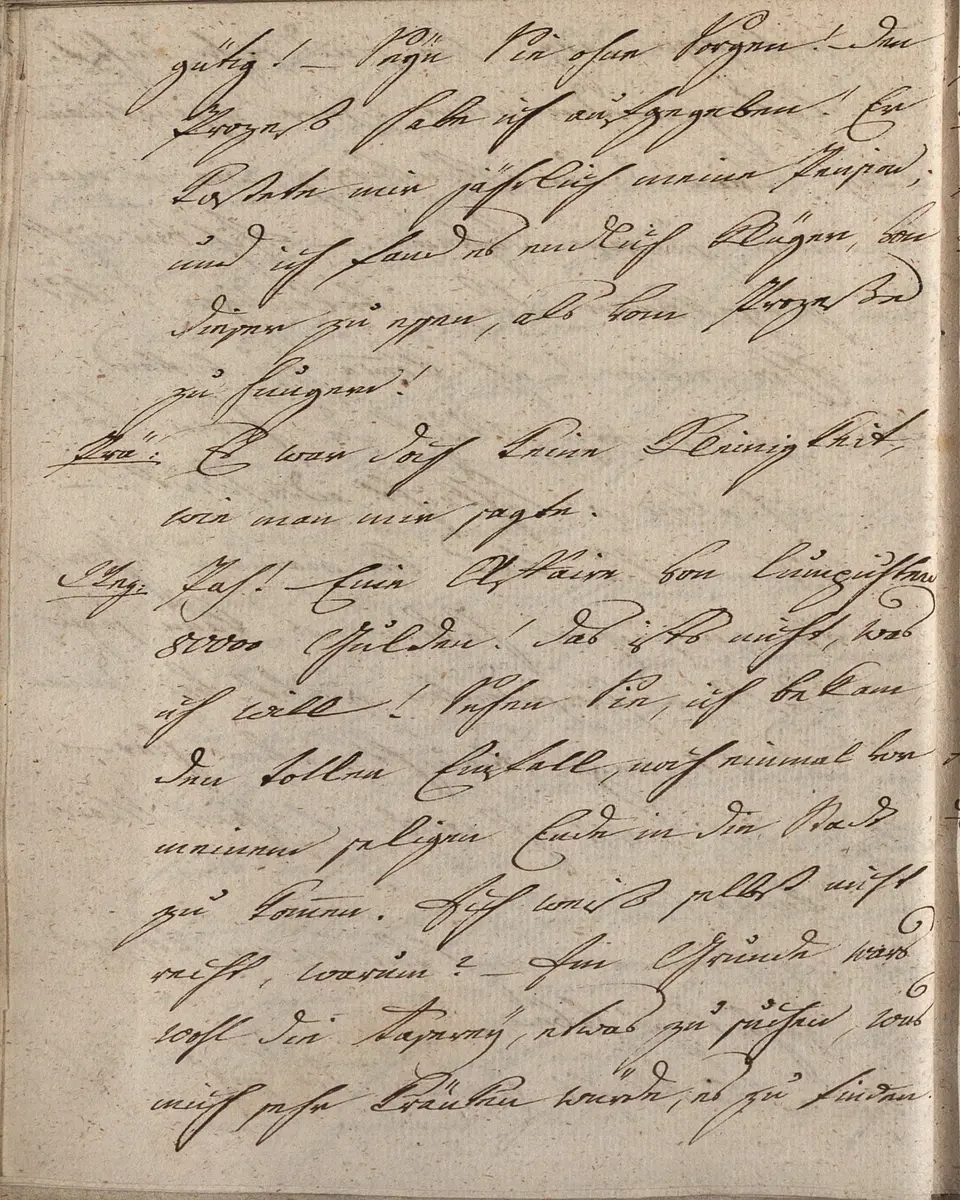 gütig! — Seyn Sie ohne Sorgen! Den
Prozeß habe ich aufgegeben! Er
kostete mir jährlich meine Pension,
und ich fand es endlich klüger, von
dieser zu essen, als vom Prozeße
zu hungern!
Prä: Es war doch keine Kleinigkeit,
wie man mir sagte.
Pah! — Eine Affaire von lumpichten
80000 Gulden! das ists nicht, was
ich will! Sehen Sie, ich bekam
den tollen Einfall, noch einmal vor
meinem seligen Ende in die Stadt
zu kom̄en. Ich weiß selbst nicht
recht, warum? — Im Grunde wars
wohl die Raserey, etwas zu suchen, was
mich sehr kränken würde, es zu finden.